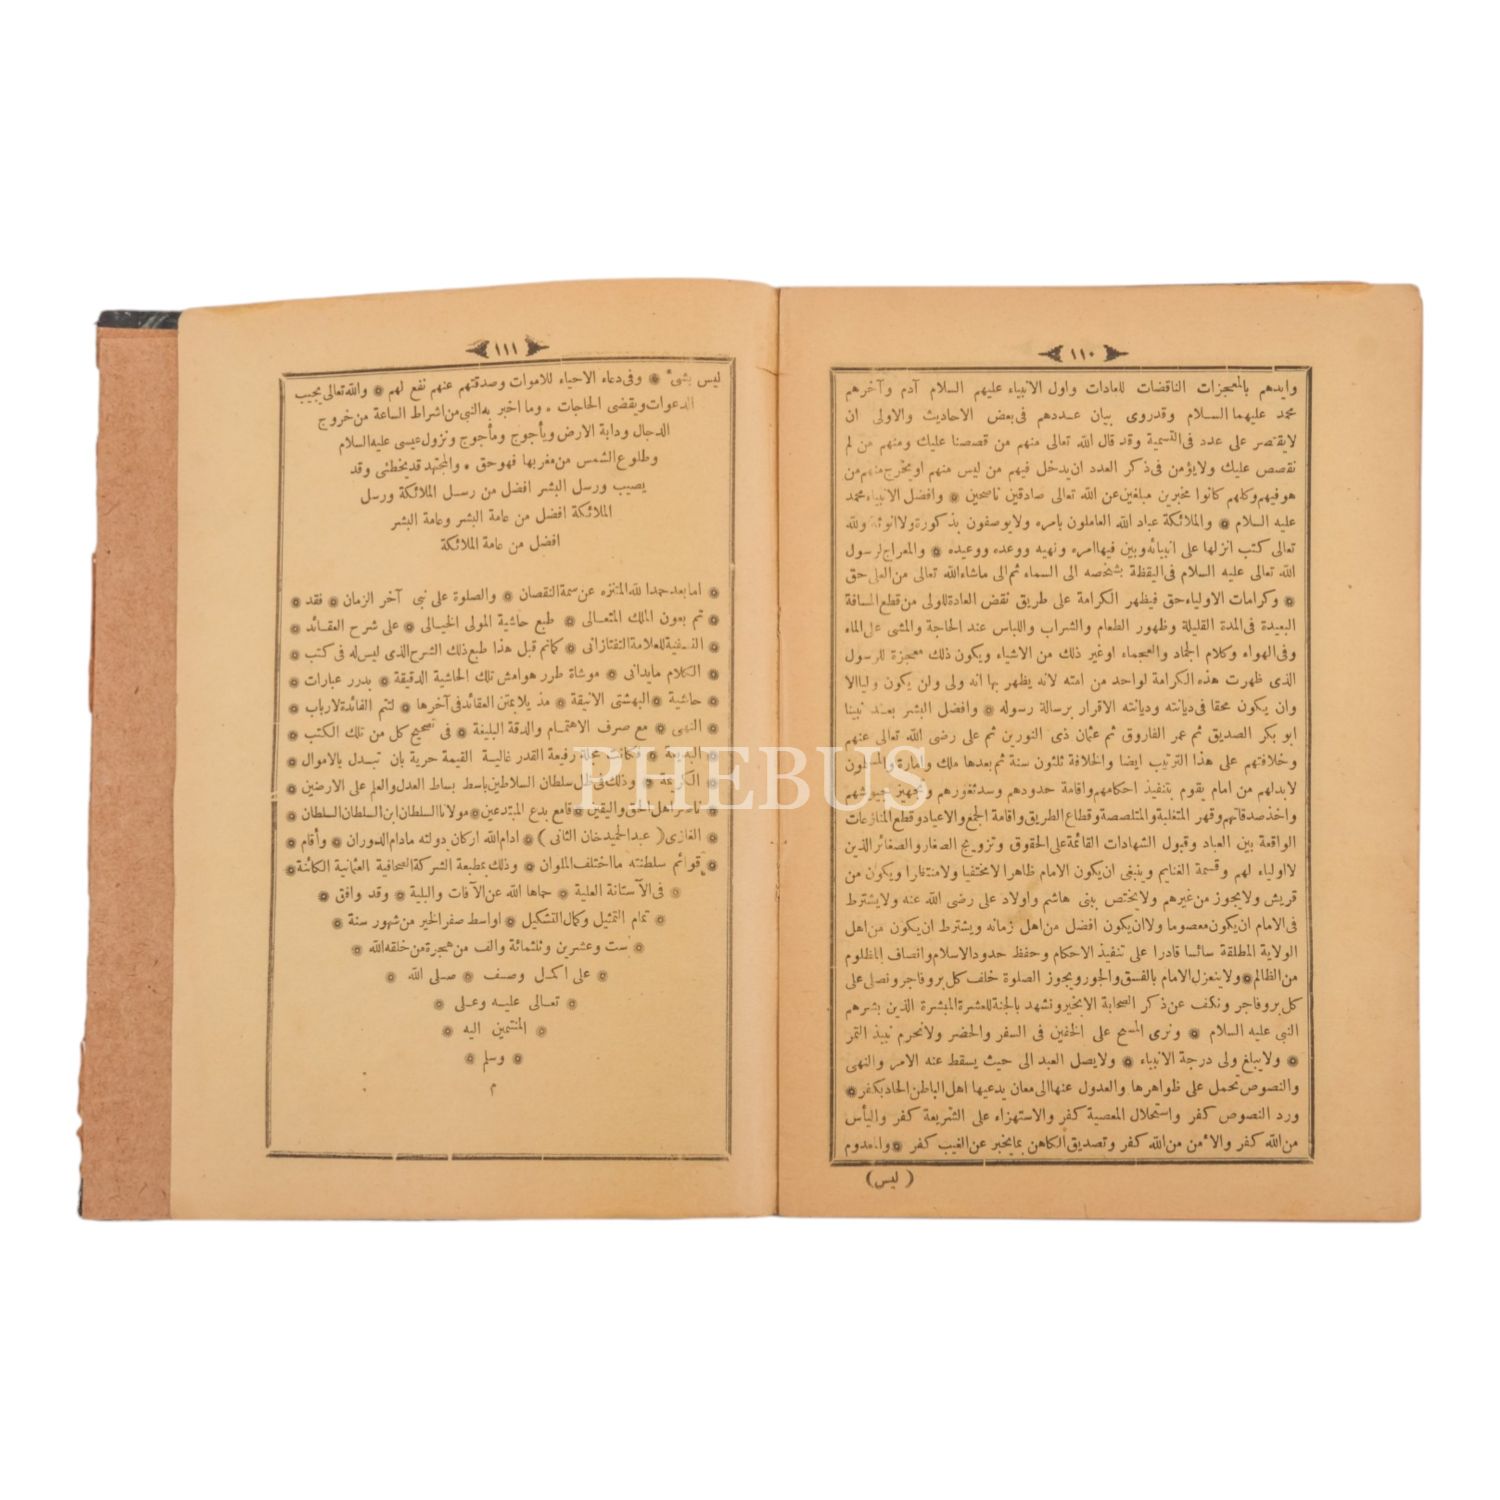 ١١٠
وايدهم بالمعجزات الناقضات للعادات واول الانبياء عليهم السلام آدم وآخرهم
محمد عليهما السلام وقدروى بيان عددهم فى بعض الاحاديث والاولى ان
لايقتصر على عدد فى التسمية وقد قال الله تعالى منهم من قصصنا عليك ومنهم من لم
نقصص عليك ولايؤمن فى ذكر العدد ان يدخل فيهم من ليس منهم او يخرج منهم من
هو فيهم وكلهم كانوا مخبرين مبلغين عن الله تعالى صادقين ناصحين ۞ وافضل الانبياء محمد
عليه السلام ۞ والملائكة عباد الله العاملون بامره ولايوصفون بذكورة ولاانوثة ولله
تعالى كتب انزلها على انبيائه وبين فيها امره ونهيه ووعده ووعيده ۞ والمعراج لرسول
الله تعالى عليه السلام فى اليقظة بشخصه الى السماء ثم الى ماشاء الله تعالى من العلى حق
۞ وكرامات الاولياء حق فيظهر الكرامة على طريق نقض العادة للولى من قطع المسافة
البعيدة فى المدة القليلة وظهور الطعام والشراب واللباس عند الحاجة والمشى على الماء
وفى الهواء وكلام الجماد والعجماء اوغير ذلك من الاشياء ويكون ذلك معجزة للرسول
الذى ظهرت هذه الكرامة لواحد من امته لانه يظهر بها انه ولى ولن يكون وليا الا
وان يكون محقا فى ديانته وديانته الاقرار برسالة رسوله ۞ وافضل البشر بعد نبينا
ابو بكر الصديق ثم عمر الفاروق ثم عثمان ذى النورين ثم على رضى الله تعالى عنهم
وخلافتهم على هذا الترتيب ايضا والخلافة ثلثون سنة ثم بعدها ملك وامارة والمسلمون
لابد لهم من امام يقوم بتنفيذ احكامهم واقامة حدودهم وسد ثغورهم وتجهيز جيوشهم
واخذ صدقاتهم وقهر المتغلبة والمتلصصة وقطاع الطريق واقامة الجمع والاعياد وقطع المنازعات
الواقعة بين العباد وقبول الشهادات القائمة على الحقوق وتزويج الصغار والصغائر الذين
لا اولياء لهم وقسمة الغنايم وينبغى ان يكون الامام ظاهرا لامختفيا ولامنتظرا ويكون من
قريش ولايجوز من غيرهم ولايختص ببنى هاشم واولاد على رضى الله عنه ولايشترط
فى الامام ان يكون معصوما ولا ان يكون افضل من اهل زمانه ويشترط ان يكون من اهل
الولاية المطلقة سائسا قادرا على تنفيذ الاحكام وحفظ حدود الاسلام وانصاف المظلوم
من الظالم ۞ ولاينعزل الامام بالفسق والجور ويجوز الصلوة خلف كل بر وفاجر ونصلى على
كل بر وفاجر ونكف عن ذكر الصحابة الابخير ونشهد بالجنة للعشرة المبشرة الذين بشرهم
النبى عليه السلام ۞ ونرى المسح على الخفين فى السفر والحضر ولانحرم نبيذ التمر
۞ ولايبلغ ولى درجة الانبياء ۞ ولايصل العبد الى حيث يسقط عنه الامر والنهى
والنصوص تحمل على ظواهرها والعدول عنها الى معان يدعيها اهل الباطن الحاد بكفر ۞
ورد النصوص كفر واستحلال المعصية كفر والاستهزاء على الشريعة كفر واليأس
من الله كفر والأمن من الله كفر وتصديق الكاهن بما يخبر عن الغيب كفر ۞ والمعدوم
( ليس )
١١١
ليس بشئ ۞ وفى دعاء الاحياء للاموات وصدقتهم عنهم نفع لهم ۞ والله تعالى يجيب
الدعوات ويقضى الحاجات ۞ وما اخبر به النبى من اشراط الساعة من خروج
الدجال ودابة الارض ويأجوج ومأجوج ونزول عيسى عليه السلام
وطلوع الشمس من مغربها فهو حق ۞ والمجتهد قد يخطئى وقد
يصيب ورسل البشر افضل من رسل الملائكة ورسل
الملائكة افضل من عامة البشر وعامة البشر
افضل من عامة الملائكة
۞ اما بعد حمدا لله المتنزه عن سمة النقصان ۞ والصلوة على نبى آخر الزمان ۞ فقد ۞
۞ تم بعون الملك المتعالى ۞ طبع حاشية المولى الخيالى ۞ على شرح العقائد ۞
۞ النسفية للعلامة التفتازانى ۞ كماتم قبل هذا طبع ذلك الشرح الذى ليس له فى كتب ۞
۞ الكلام مايدانى ۞ موشاة طرر هوامش تلك الحاشية الدقيقة ۞ بدرر عبارات ۞
۞ حاشية ۞ البهشتى الانيقة ۞ مذيلا بمتن العقائد فى آخرها ۞ لتتم الفائدة لارباب ۞
۞ النهى ۞ مع صرف الاهتمام والدقة البليغة ۞ فى تصحيح كل من تلك الكتب ۞
۞ البديعة ۞ فكانت مجلة رفيعة القدر غالية القيمة حرية بان تبدل بالاموال ۞
۞ الكريمة ۞ وذلك فى ظل سلطان السلاطين باسط بساط العدل والعلم على الارضين ۞
۞ ناصر اهل الحق واليقين ۞ قامع بدع المبتدعين ۞ مولانا السلطان ابن السلطان السلطان ۞
۞ الغازى ( عبد الحميد خان الثانى ) ۞ ادام الله اركان دولته مادام الدوران ۞ واقام ۞
۞ قوائم سلطنته ما اختلف الملوان ۞ وذلك بمطبعة الشركة الصحافية العثمانية الكائنة ۞
۞ فى الآستانة العلية ۞ حماها الله عن الآفات والبلية ۞ وقد وافق ۞
۞ تمام التمثيل وكمال التشكيل ۞ اواسط صفر الخير من شهور سنة ۞
۞ ست وعشرين وثلثمائة والف من هجرة من خلقه الله ۞
۞ على اكمل وصف ۞ صلى الله ۞
۞ تعالى عليه وعلى ۞
۞ المنتمين اليه ۞
۞ وسلم ۞
م
PHEBUS